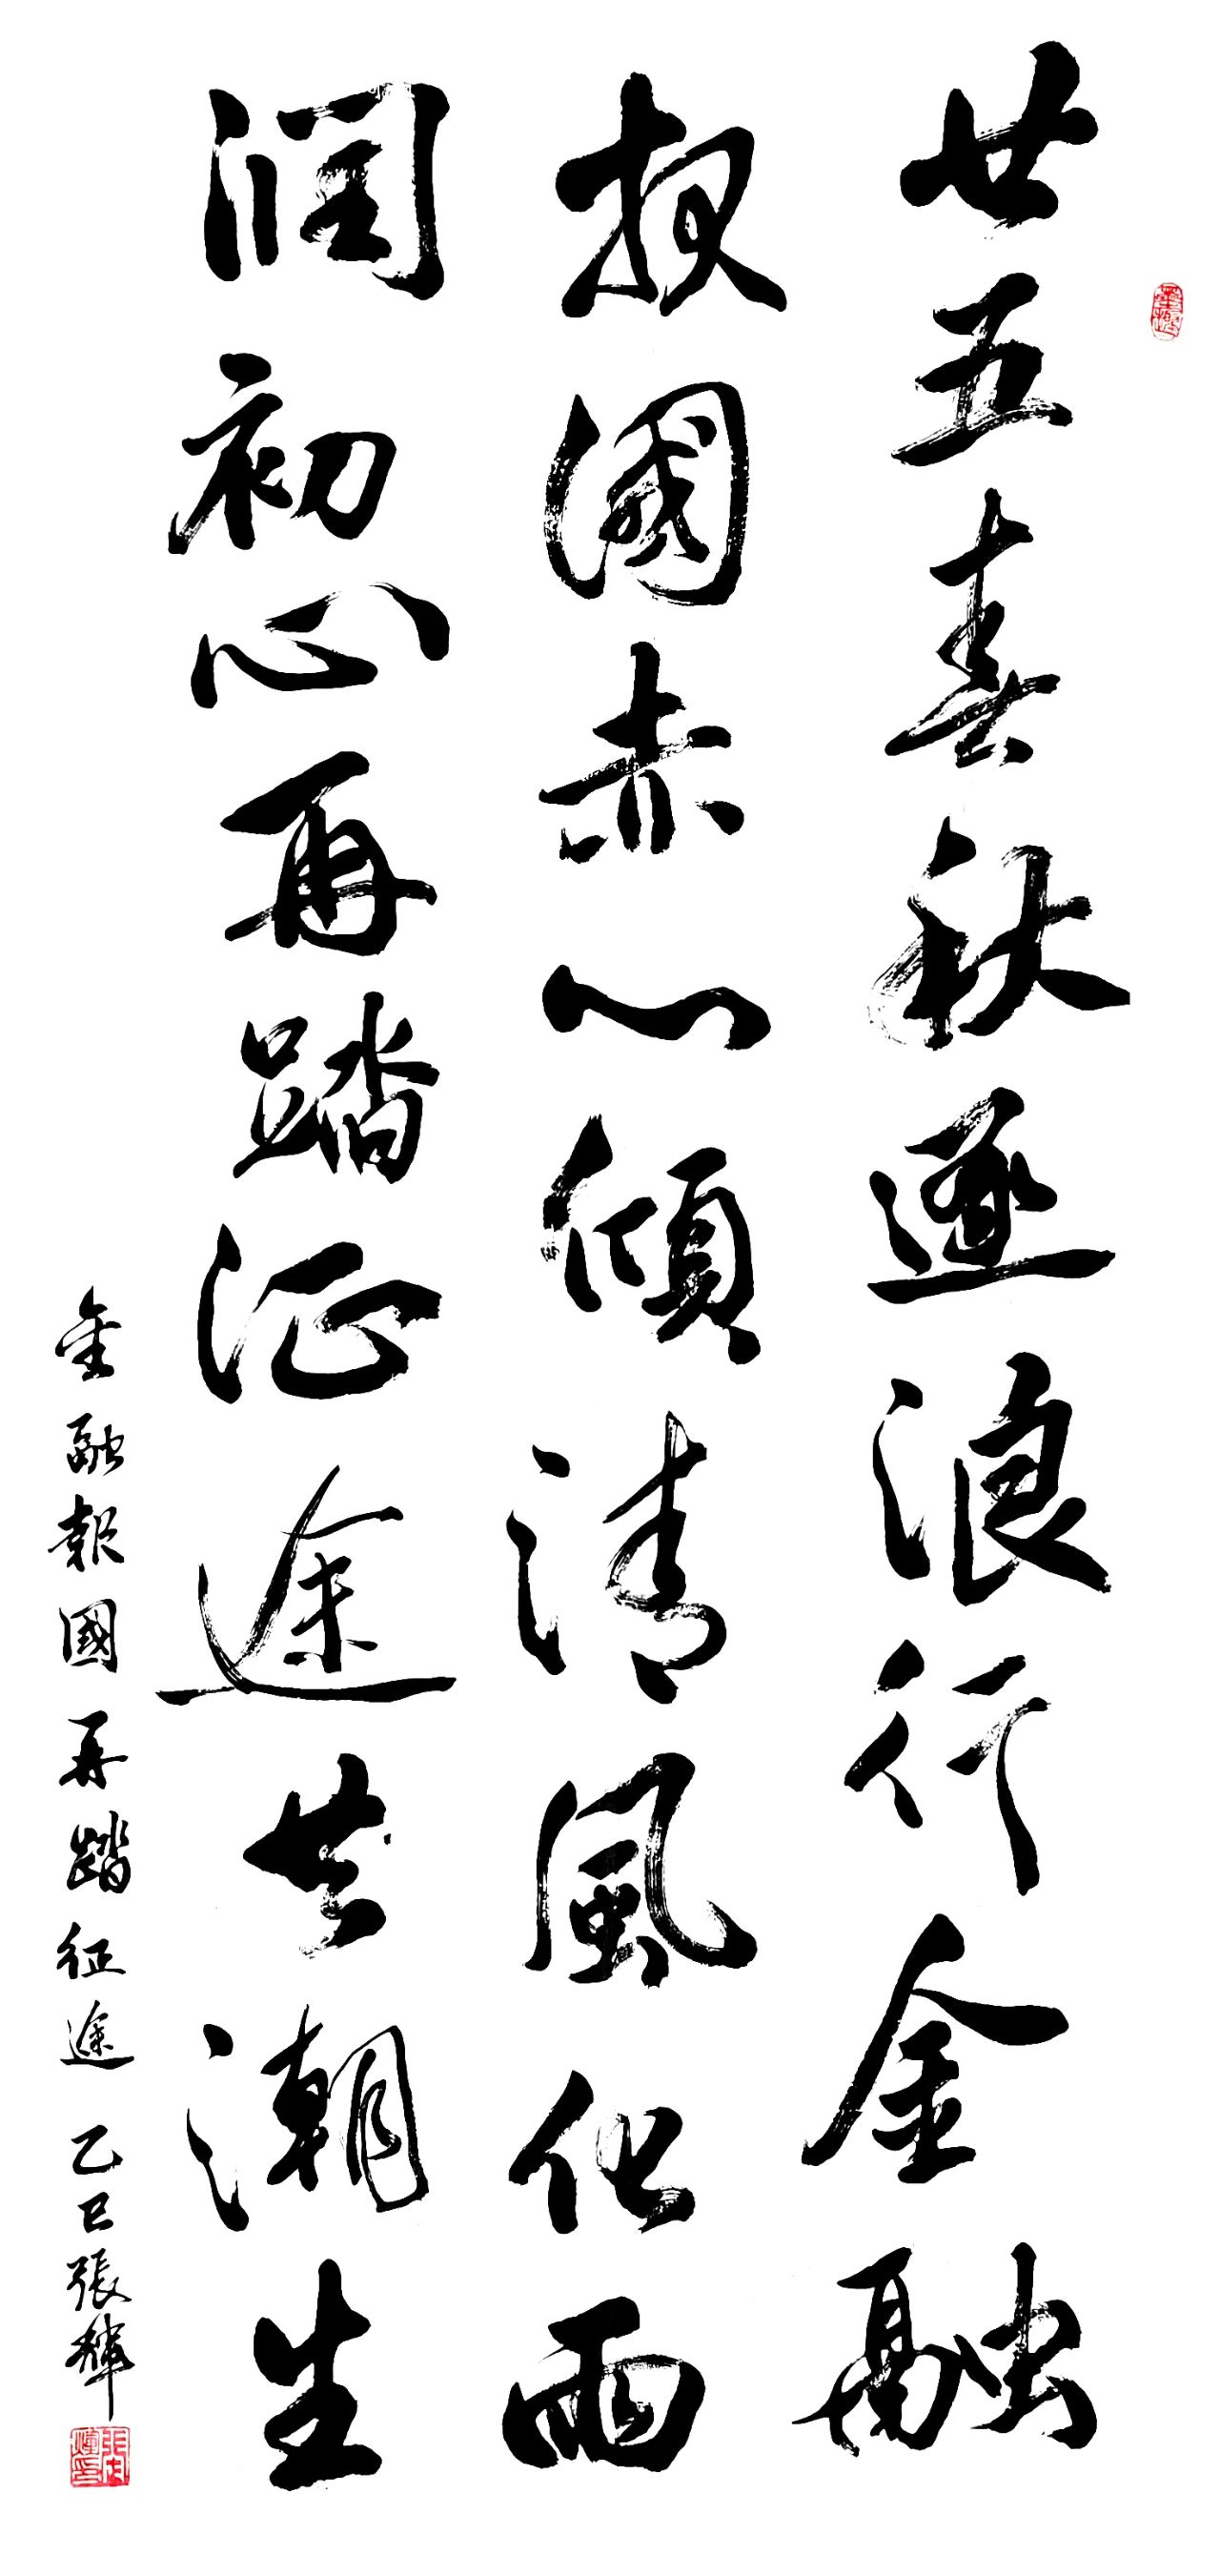 廿五春秋逐浪行金融
报國赤心傾清風化雨
潤初心再踏征途共潮生
金融報國再踏征途 乙巳張輝